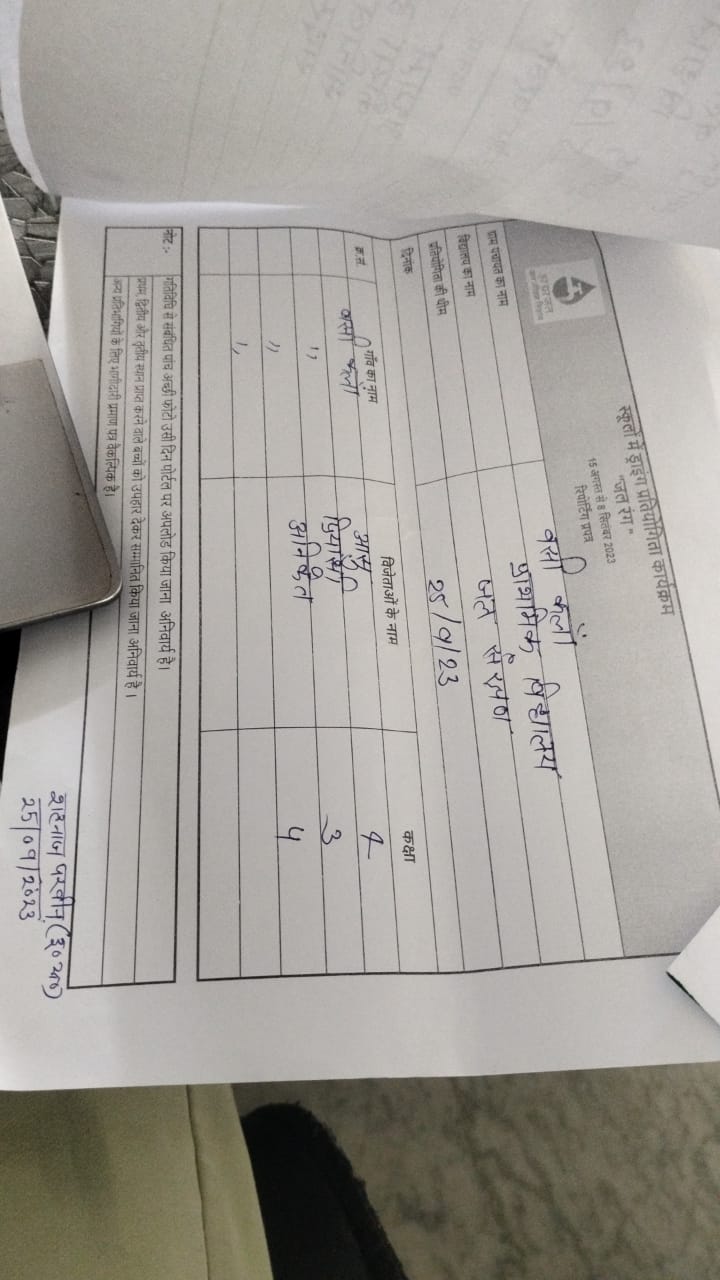 हर घर जल
जल जीवन मिशन
स्कूलों में ड्राइंग प्रतियोगिता कार्यक्रम
"जल रंग"
15 अगस्त से 8 सितंबर 2023
रिपोर्टिंग प्रपत्र
ग्राम पंचायत का नाम बस्ती केलो
विद्यालय का नाम प्राथमिक विद्यालय
प्रतियोगिता की थीम जल संरक्षण
दिनांक 25/9/23
क्र.सं. गाँव का नाम विजेताओं के नाम कक्षा
बस्ती केलो आसु 4
,, प्रियांशी 3
,, अनिकेत 4
,,
नोट :- गतिविधि से संबंधित पांच अच्छी फोटो उसी दिन पोर्टल पर अपलोड किया जाना अनिवार्य है।
प्रथम, द्वितीय और तृतीय स्थान प्राप्त करने वाले बच्चों को उपहार देकर सम्मानित किया जाना अनिवार्य है।
अन्य प्रतिभागियों के लिए भागीदारी प्रमाण पत्र वैकल्पिक है।
शहनाज परवीन (इ०अ०)
25/09/2023